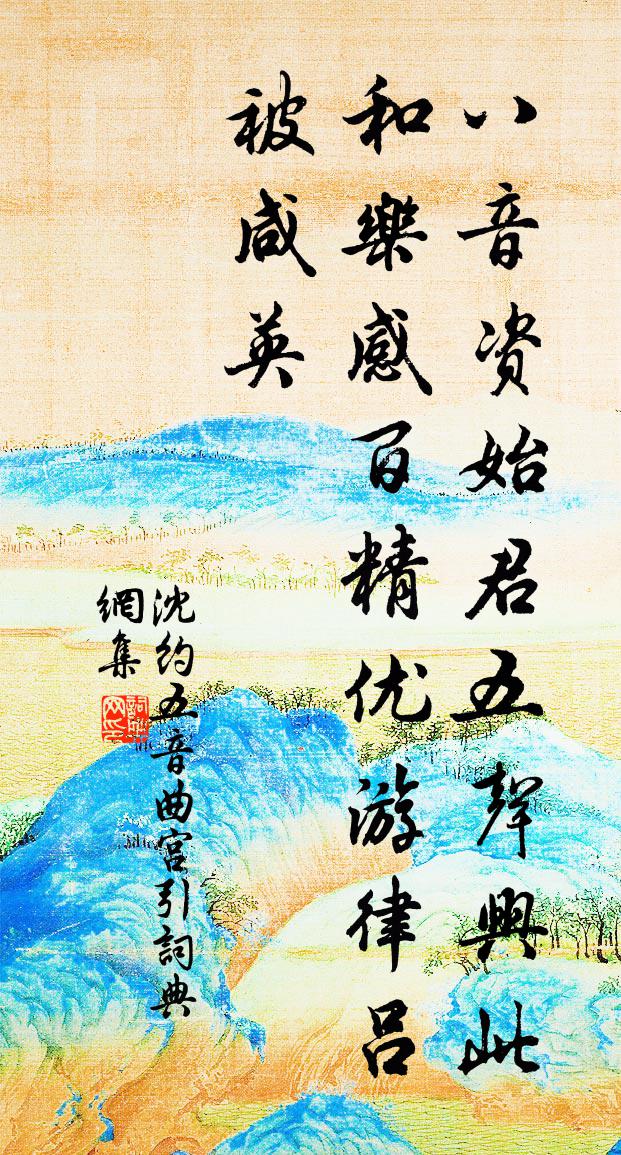 八音资始君五聲興此
和樂感百精优游律吕
被咸英
沈约五音曲宫引詞典
網集